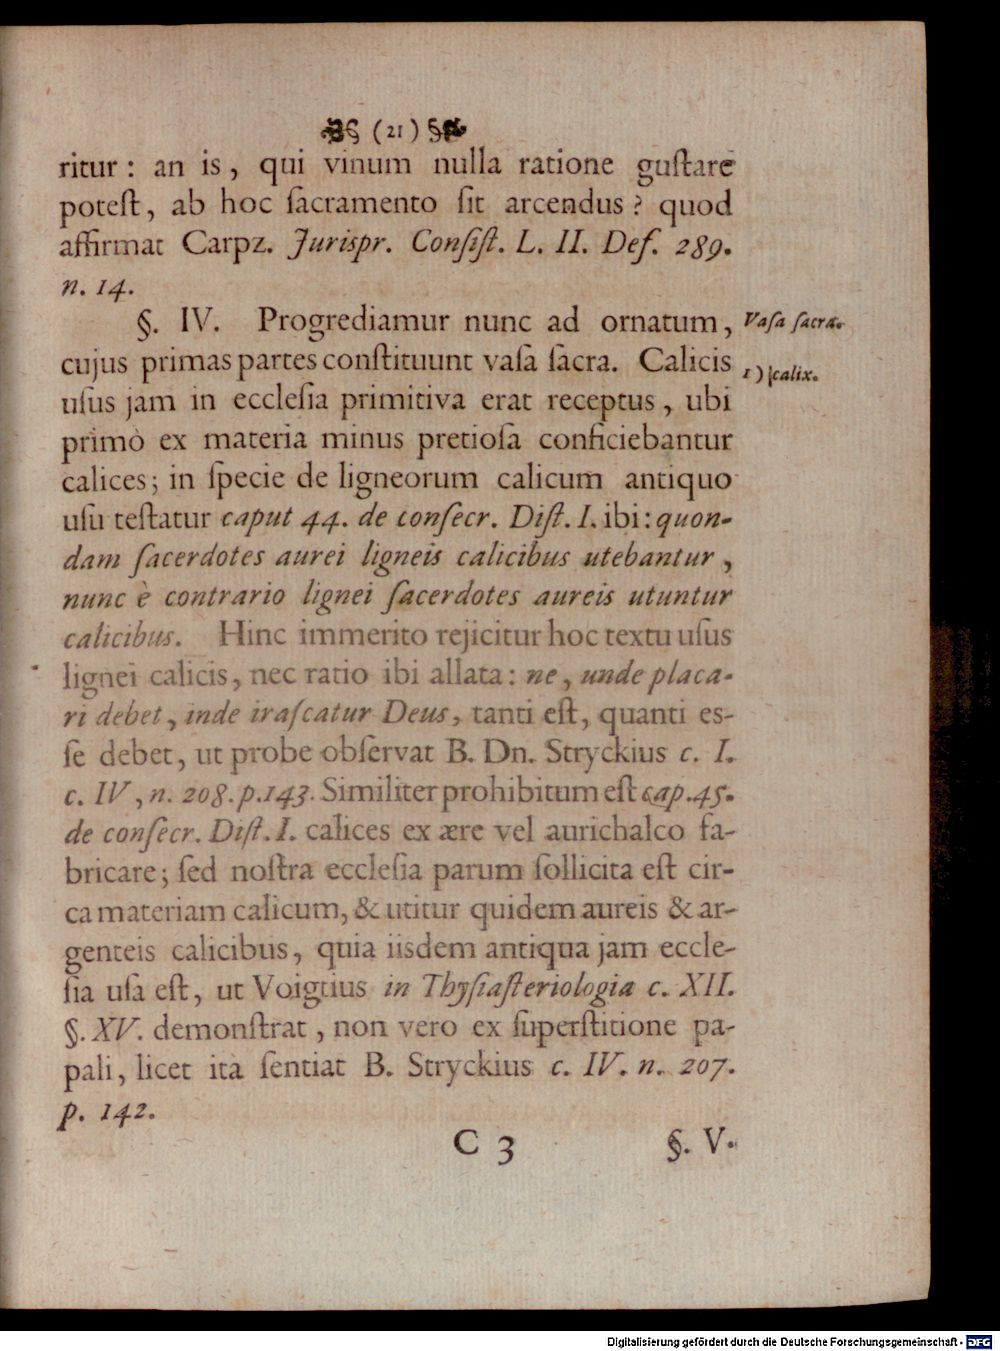 (21)
ritur: an is, qui vinum nulla ratione guſtare
poteſt, ab hoc ſacramento ſit arcendus? quod
affirmat Carpz. Jurispr. Conſiſt. L. II. Def. 289.
n. 14.
§. IV. Progrediamur nunc ad ornatum,
Vaſa ſacra.
cujus primas partes conſtituunt vaſa ſacra. Calicis
1) calix.
uſus jam in eccleſia primitiva erat receptus, ubi
primò ex materia minus pretioſa conficiebantur
calices; in ſpecie de ligneorum calicum antiquo
uſu teſtatur caput 44. de conſecr. Diſt. I. ibi: quon-
dam ſacerdotes aurei ligneis calicibus utebantur,
nunc è contrario lignei ſacerdotes aureis utuntur
calicibus. Hinc immerito rejicitur hoc textu uſus
lignei calicis, nec ratio ibi allata: ne, unde placa-
ri debet, inde iraſcatur Deus, tanti eſt, quanti es-
ſe debet, ut probe obſervat B. Dn. Stryckius c. I.
c. IV, n. 208. p. 143. Similiter prohibitum eſt cap. 45.
de conſecr. Diſt. I. calices ex ære vel aurichalco fa-
bricare; ſed noſtra eccleſia parum ſollicita eſt cir-
ca materiam calicum, & utitur quidem aureis & ar-
genteis calicibus, quia iisdem antiqua jam eccle-
ſia uſa eſt, ut Voigtius in Thyſiaſteriologia c. XII.
§. XV. demonſtrat, non vero ex ſuperſtitione pa-
pali, licet ita ſentiat B. Stryckius c. IV. n. 207.
p. 142.
C 3 §. V.
Digitalisierung gefördert durch die Deutsche Forschungsgemeinschaft - DFG